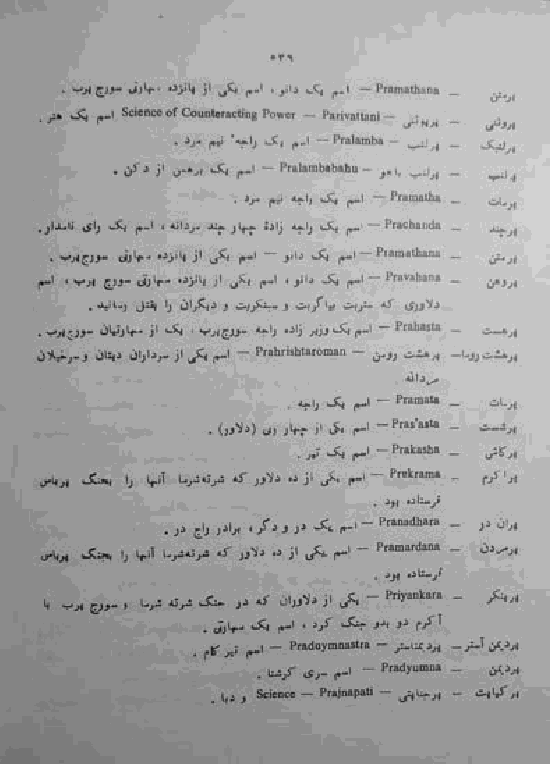 ۵۳۹
پرمتن — Pramathana — اسم یک دانو، اسم یکی از پانزده سهارتی سورج پرب.
پروتنی — پریوتنی — Science of Counteracting Power — Parivattani اسم یک هنر.
پرلنبک — پرلنب — Pralamba — اسم یک راجه نیم مرد.
پرلنب — پرلنب باهو — Pralambabahu — اسم یک برهمن از دکن.
پرمات — Pramatha — اسم یک راجه نیم مرد.
پرچند — Prachanda — اسم یک راجه زادهٔ چهار چند مردانه، اسم یک رای نامدار.
پرمتن — Pramathana — اسم یک دانو — اسم یکی از پانزده سهارتی سورج پرب.
پروهن — Pravahana — اسم یک دانو، اسم یکی از پانزده سهارتی سورج پرب، اسم
دلاوری که و دیگران را بقتل رسانید.
پرهست — Prahasta — اسم یک وزیر زاده راجه سورج پرب، یک از سهارتیان سورج پرب.
پرهشت روما — پرهشت رومن — Prahrishtaroman — اسم یکی از سرداران دیتان و سرخیلان
مردانه.
پرمات — Pramata — اسم یک راجه.
پرشست — Pras'asta — اسم یکی از چهار رتی (دلاور).
پرکاش — Prakasha — اسم یک تیر.
پراکرم — Prekrama — اسم یکی از ده دلاور که شرته شرما آنها را بجنگ پربهاس
فرستاده بود.
پران در — Pranadhara — اسم یک در و دگر، برادر راج در.
پرمردن — Pramardana — اسم یکی از ده دلاور که شرته شرما آنها را بجنگ پربهاس
فرستاده بود.
پرینکر — Priyankara — یکی از دلاوران که در جنگ شرته شرما و سورج پرب با
آکرم دو بدو جنگ کرد، اسم یک سهارتی.
پردیمن آستر — پردیمناستر — Pradoymnastra — اسم تیر کام.
پردیمن — Pradyumna — اسم سری کرشنا.
پرکیاپت — پرجناپتی — Science — Prajnapati و دیا.